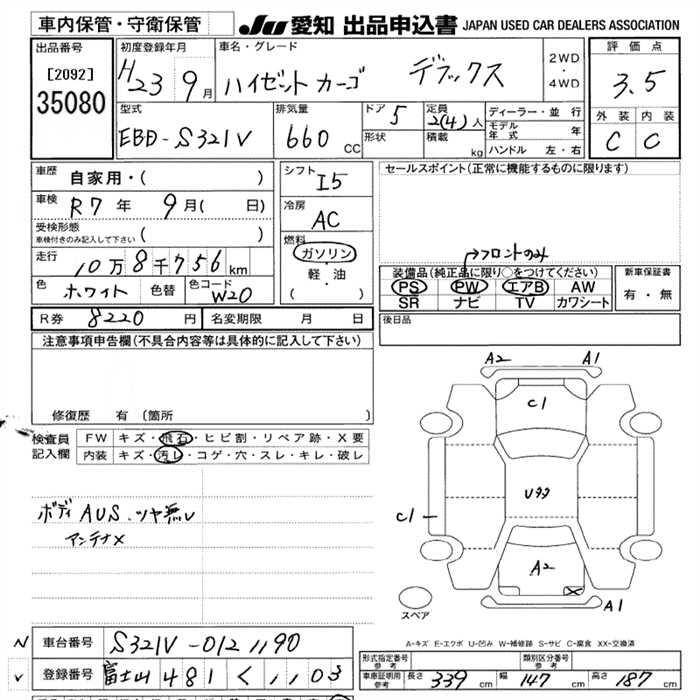 車内保管・守衛保管
JU 愛知 出品申込書 JAPAN USED CAR DEALERS ASSOCIATION
出品番号
[2092]
35080
初度登録年月
H23 9月
車名・グレード
ハイゼットカーゴ デラックス
2WD
・
4WD
評価点
3.5
外装 内装
C C
型式
EBD-S321V
排気量
660 cc
ドア 5
形状
定員 2(4)人
積載 kg
ディーラー・並行
モデル年式 年
ハンドル 左・右
車歴
自家用・( )
車検
R7年 9月( 日)
受検形態
車検付きのみ記入して下さい ( )
走行
10万8千756km
色 ホワイト 色替 色コード W20
シフト
I5
冷房
AC
燃料
ガソリン
・
軽・油
( )
セールスポイント(正常に機能するものに限ります)
フロントのみ
装備品(純正品に限り○をつけてください)
PS PW エアB AW
SR ナビ TV カワシート
新車保証書
有・無
R券 8220円 名変期限 月 日
後日品
注意事項申告欄(不具合内容等は具体的に記入して下さい)
修復歴 有 (箇所
検査員
記入欄
FW キズ・飛石・ヒビ割・リペア跡・X要
内装 キズ・汚レ・コゲ・穴・スレ・キレ・破レ
ボディAUS.ツヤ無し
アンテナX
A2 A1
C1
Uタタ
C1
A2
X
A1
スペア
A-キズ E-エクボ U-凹み W-補修跡 S-サビ C-腐食 XX-交換済
N 車台番号 S321V-012 1190
登録番号 富士山 481 く ,,03
形式指定番号
参考
類別区分番号
参考
車庫証明用
参考
長さ 339 cm 幅 147 cm 高さ 187 cm